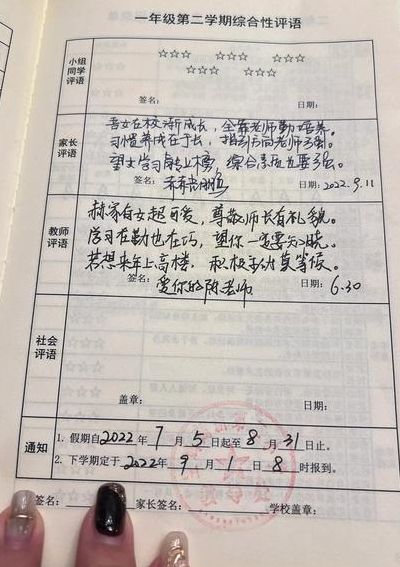 一年级第二学期综合性评语
小组
同学
评语
☆☆☆ ☆☆☆ ☆☆☆
☆☆☆ ☆☆☆
签名: 日期:
家长
评语
吾女在校渐成长,全靠老师勤培养。
习惯养成在于长,指引方向老师强。
望女学习能上榜,综合素质也要强。
签名: 日期:2022.9.11
教师
评语
郝家有女超可爱,尊敬师长有礼貌。
学习在勤也在巧,望你一定要知晓。
若想来年上高楼,积极主动莫等候。
签名:爱你的陈老师 日期:6.30
社会
评语
盖章: 日期:
通知
1. 假期自2022年7月5日起至8月31日止。
2. 下学期定于2022年9月1日8时报到。
签名: 家长签名: 学校盖章: